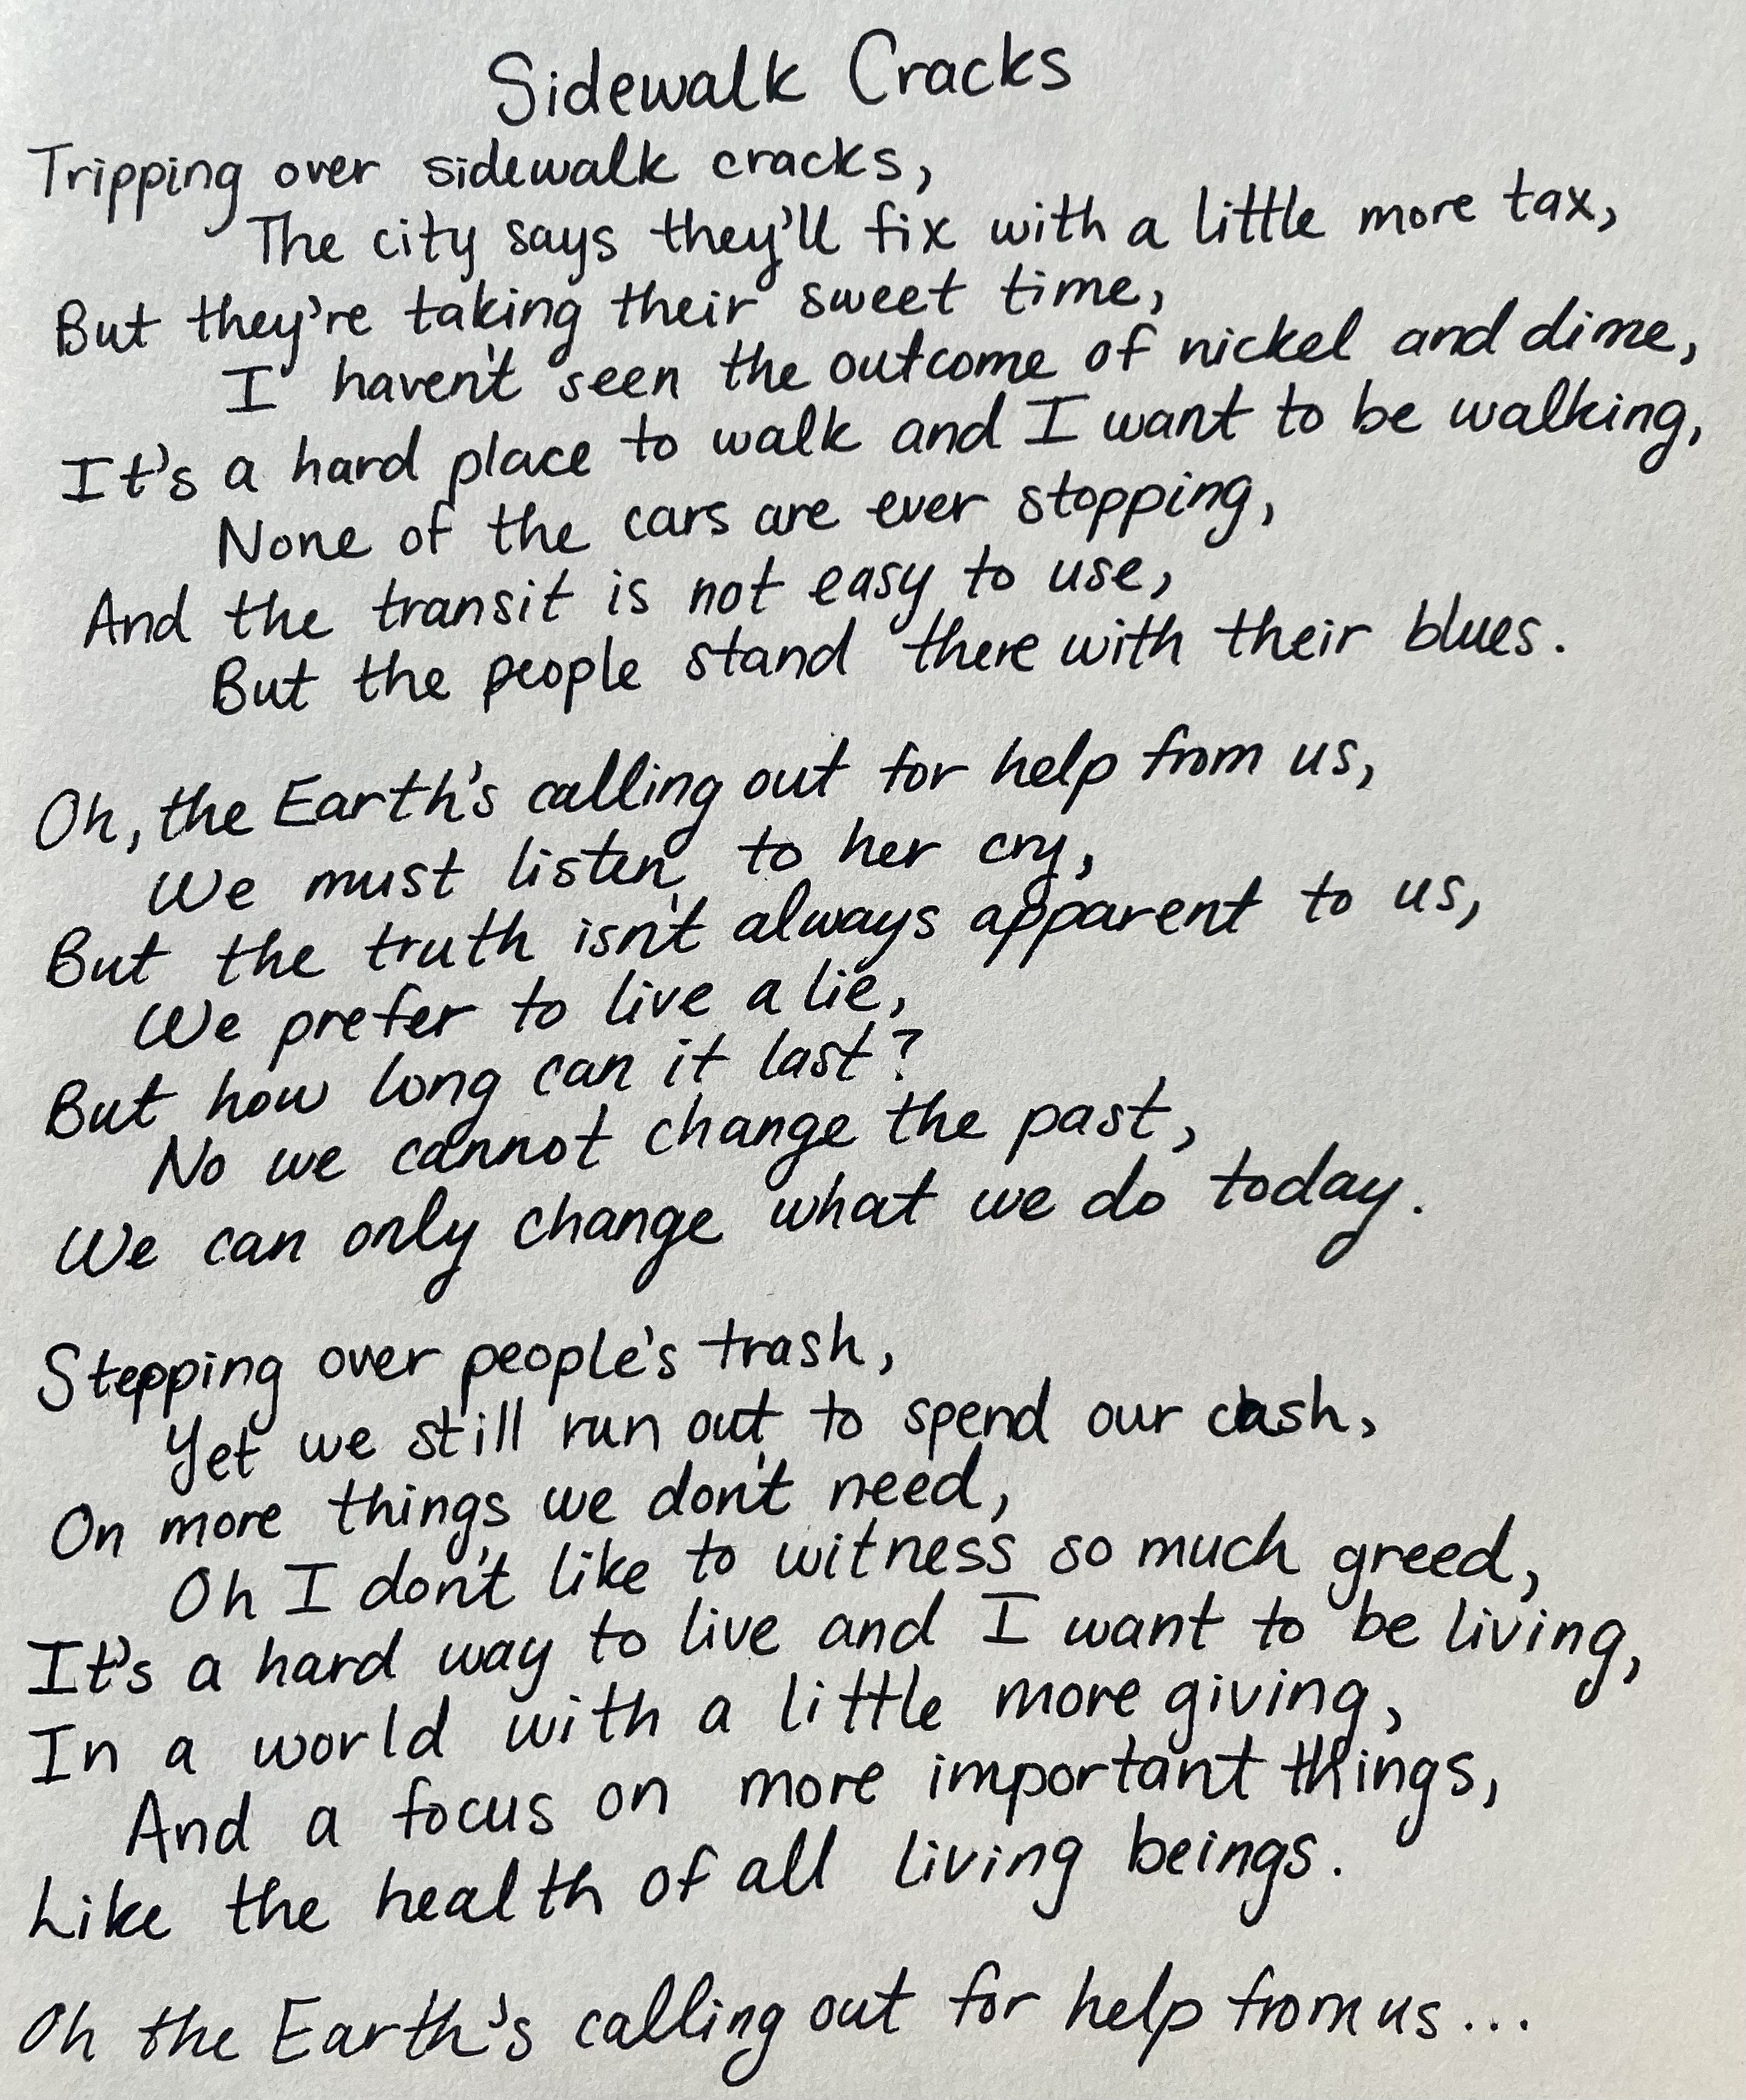 Sidewalk Cracks
Tripping over sidewalk cracks,
The city says they'll fix with a little more tax,
But they're taking their sweet time,
I haven't seen the outcome of nickel and dime,
It's a hard place to walk and I want to be walking,
None of the cars are ever stopping,
And the transit is not easy to use,
But the people stand there with their blues.
Oh, the Earth's calling out for help from us,
We must listen to her cry,
But the truth isn't always apparent to us,
We prefer to live a lie,
But how long can it last?
No we cannot change the past,
We can only change what we do today.
Stepping over people's trash,
Yet we still run out to spend our cash,
On more things we don't need,
Oh I don't like to witness so much greed,
It's a hard way to live and I want to be living,
In a world with a little more giving,
And a focus on more important things,
Like the health of all living beings.
Oh the Earth's calling out for help from us...